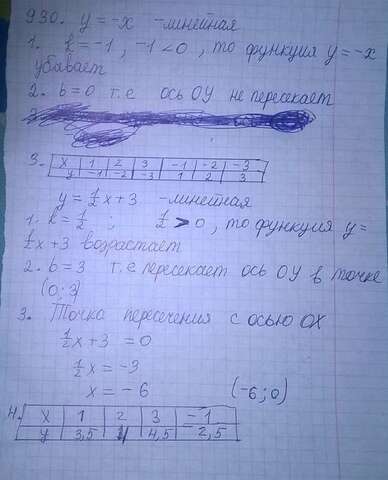 930. y = -x -линейная
1. k = -1, -1 < 0, то функция y = -x
убывает
2. b = 0 т.е ось ОУ не пересекает
3. x | 1 | 2 | 3 | -1 | -2 | -3
y | -1 | -2 | -3 | 1 | 2 | 3
y = 1/2 x + 3 -линейная
1. k = 1/2 ; 1/2 > 0, то функция y =
1/2 x + 3 возрастает
2. b = 3 т.е пересекает ось ОУ в точке
(0; 3)
3. Точка пересечения с осью ОХ
1/2 x + 3 = 0
1/2 x = -3
x = -6 (-6; 0)
4. x | 1 | 2 | 3 | -1
y | 3,5 | 4 | 4,5 | 2,5